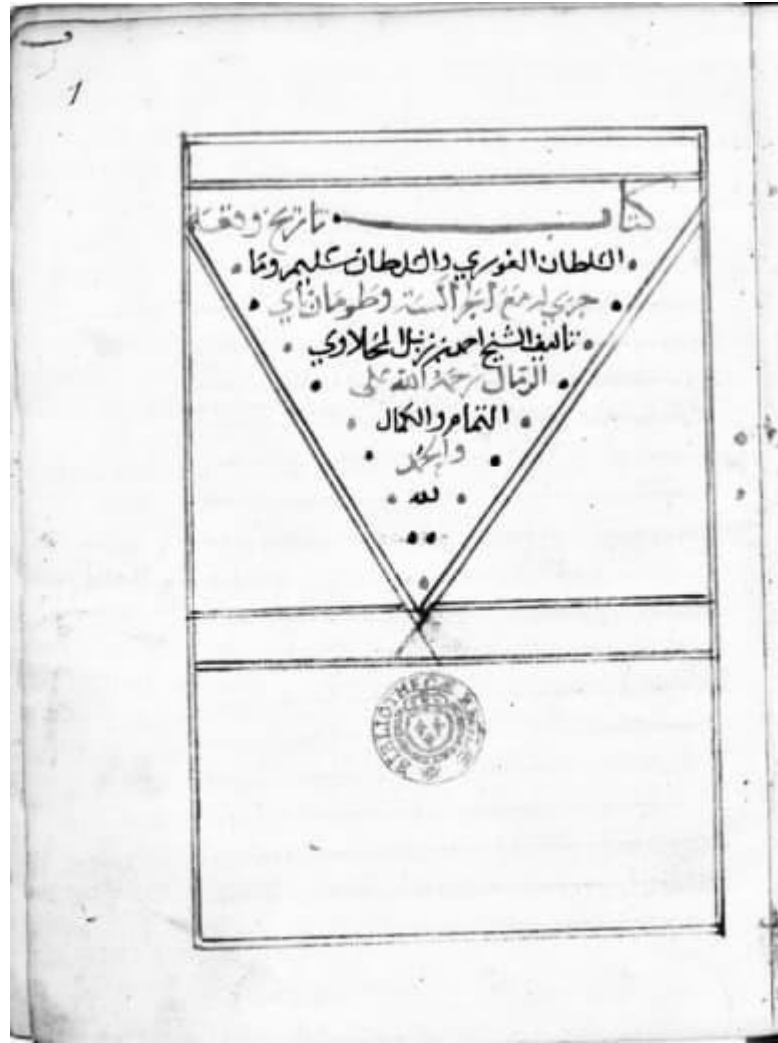 1
كتاب تاريخ وقعة
السلطان الغوري والسلطان سليم وما
جري له مع الجراكسة وطومان باي
تاليف الشيخ احمد بن زنبل المحلاوي
الرمال رحمه الله علي
التمام والكمال
والحمد
لله
BIBLIOTHECÆ REGIÆ